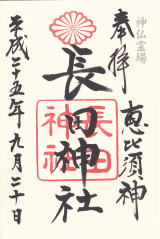 神仏霊場
奉拝
恵比須神
長田神社
長田
神社
平成二十五年九月二十日